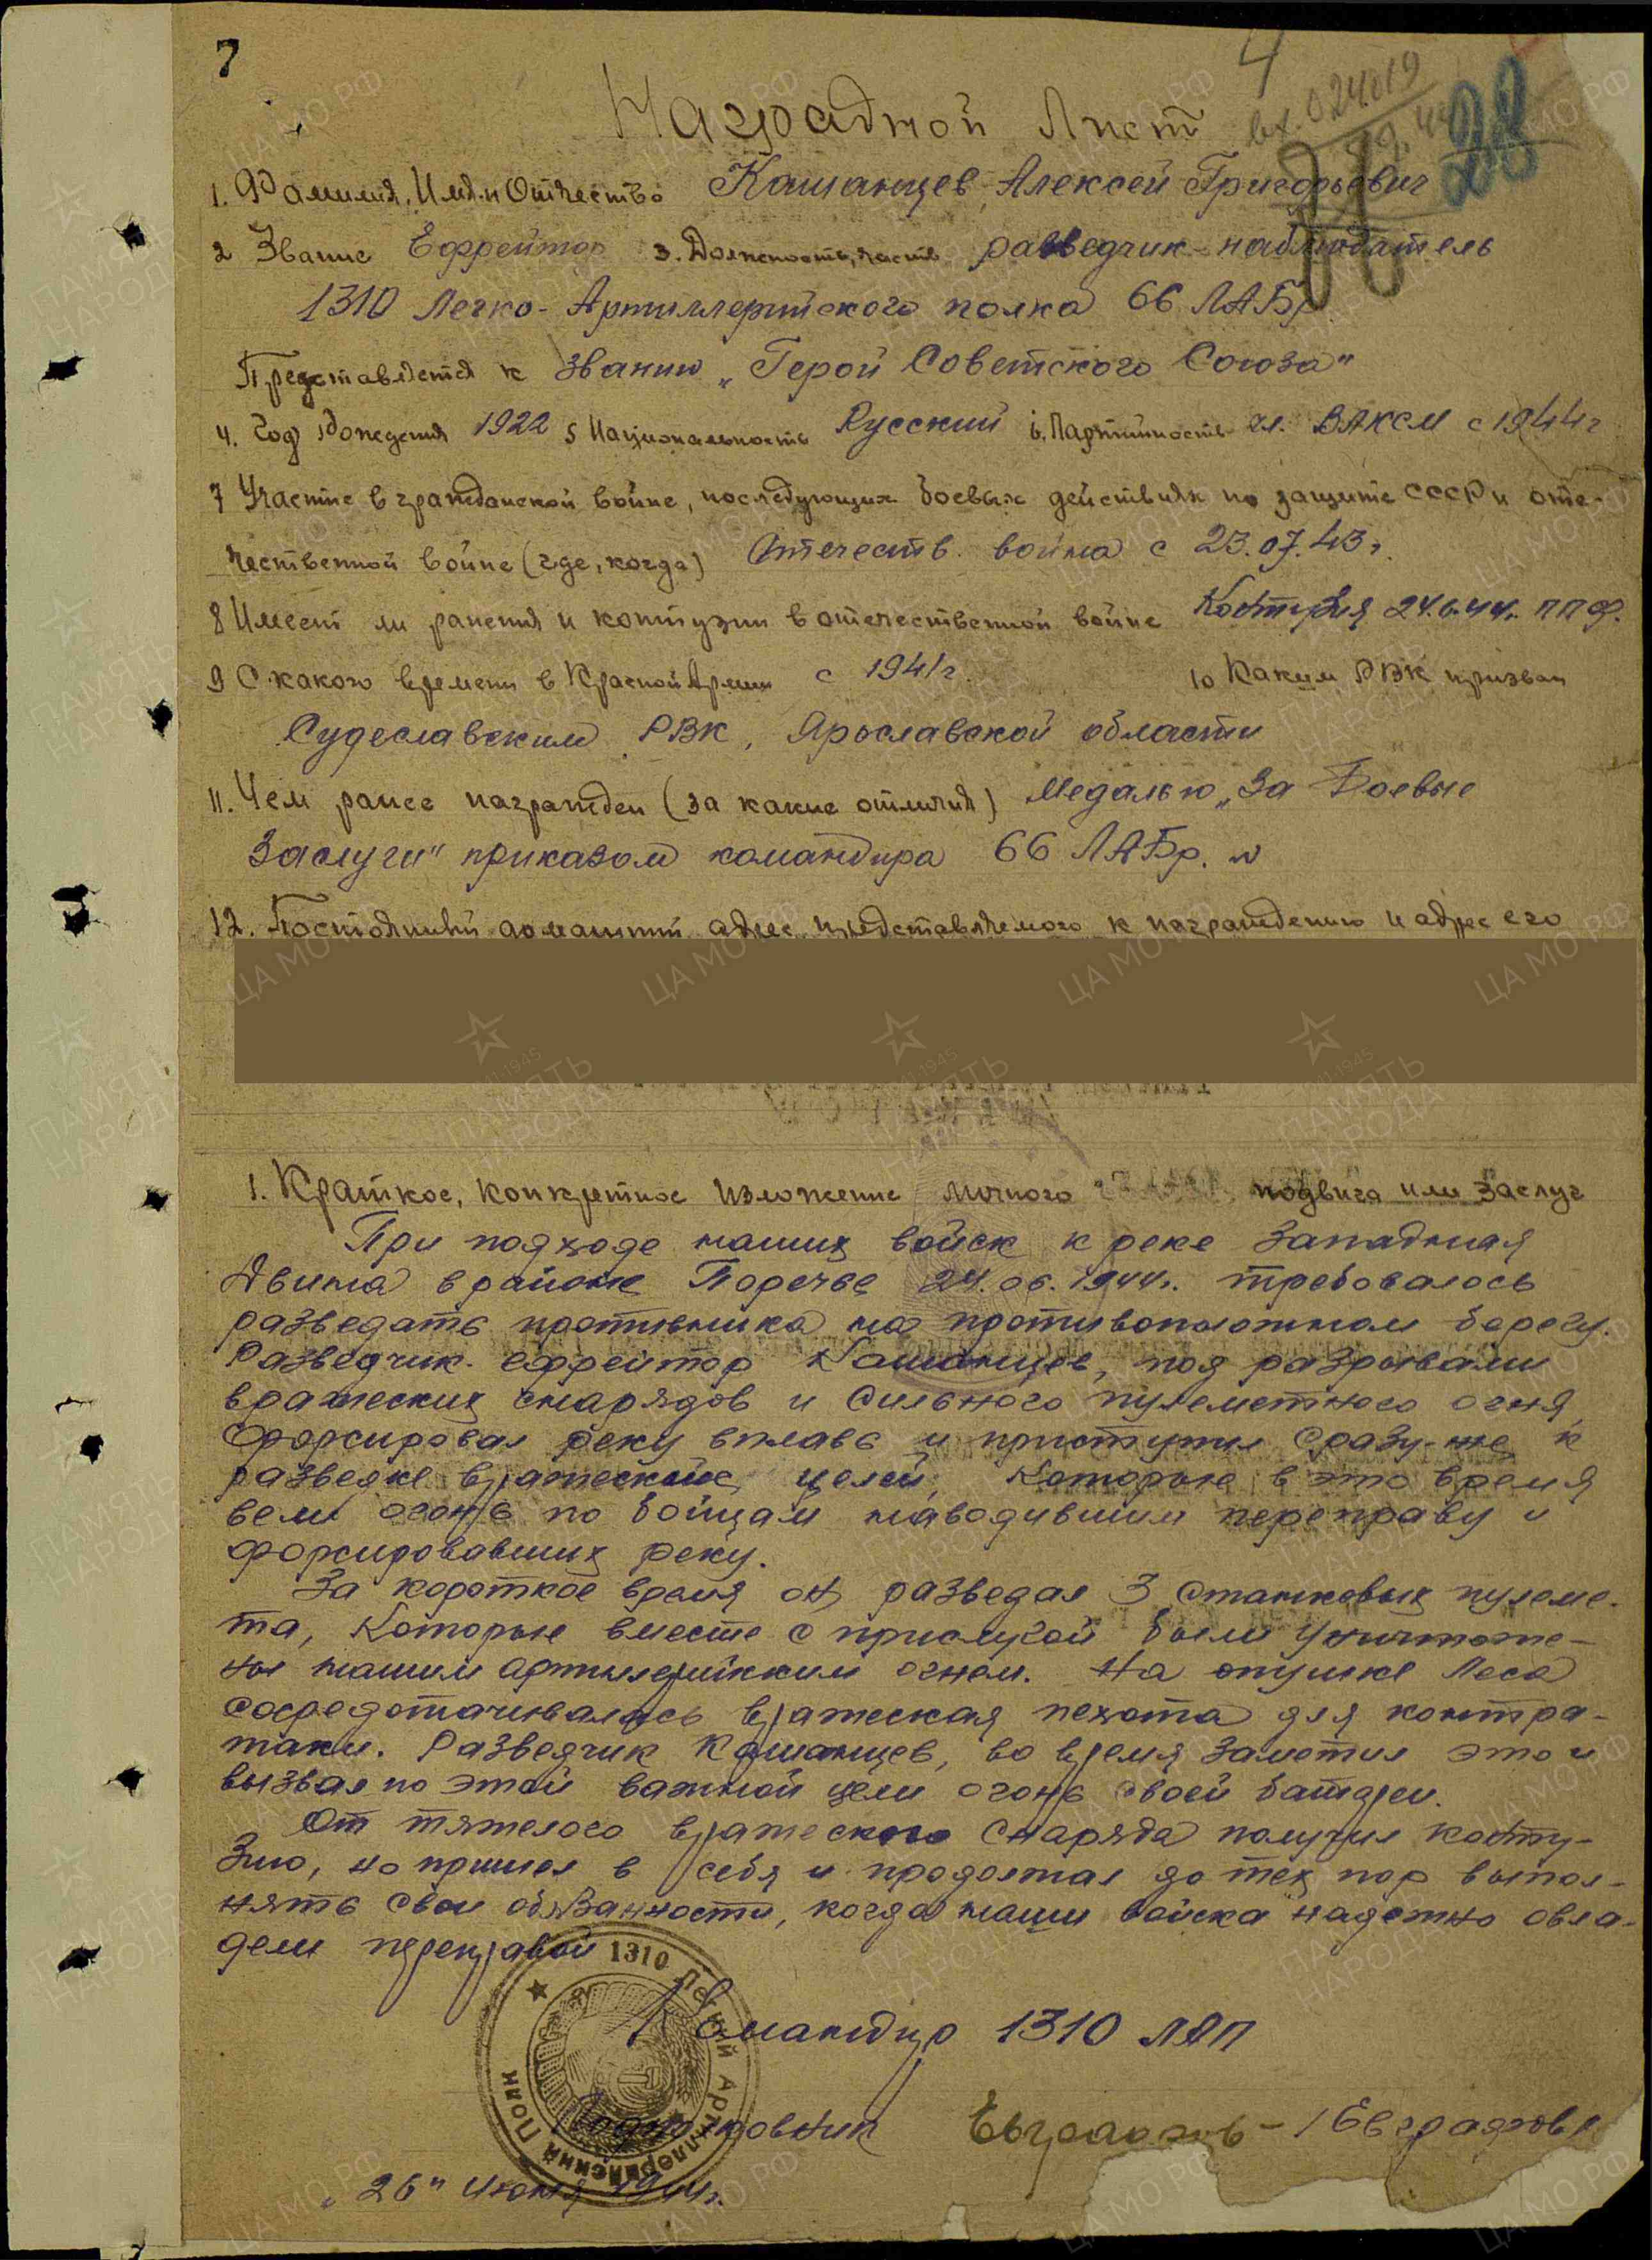 7
4
вх. 024019
28
Наградной Лист
1. Фамилия, Имя и Отчество Кашанцев Алексей Григорьевич
2 Звание Ефрейтор 3. Должность, часть разведчик-наблюдатель
1310 Легко-Артиллерийского полка 66 ЛАБр
Представляется к званию „Герой Советского Союза"
4. Год рождения 1922 5 Национальность Русский 6. Партийность чл. ВЛКСМ с 1944 г
7 Участие в гражданской войне, последующих боевых действиях по защите СССР и оте-
чественной войне (где, когда) Отечеств. война с 23.07.43 г.
8 Имеет ли ранения и контузии в отечественной войне Контузия 24.6.44г. ППФ.
9 С какого времени в Красной Армии с 1941 г. 10 Каким РВК призван
Судеславским РВК, Ярославской области
11. Чем ранее награжден (за какие отличия) Медалью „За Боевые
Заслуги" приказом командира 66 ЛАБр. №
12. Постоянный домашний адрес представляемого к награждению и адрес его
1. Краткое, конкретное изложение личного подвига или заслуг
При подходе наших войск к реке Западная
Двина в районе Поречье 24.06.1944г. требовалось
разведать противника на противоположном берегу.
Разведчик ефрейтор Кашанцев, под разрывами
вражеских снарядов и сильного пулеметного огня,
форсировал реку вплавь и приступил сразу-же к
разведке вражеских целей, которые в это время
вели огонь по бойцам наводившим переправу и
форсировавших реку.
За короткое время он разведал 3 станковых пулеме-
та, которые вместе с прислугой были уничтоже-
ны нашим артилерийским огнем. На опушке леса
сосредотачивалась вражеская пехота для контра-
таки. Разведчик Кашанцев, во время заметил это и
вызвал по этой важной цели огонь своей батареи.
От тяжелого вражеского снаряда получил конту-
зию, но пришел в себя и продолжал до тех пор выпол-
нять свои обязанности, когда наши войска надежно овла-
дели переправой
Командир 1310 ЛАП
Подполковник Евграфов - /Евграфов/
„26" Июня 1944г.
1310 Легкий Артиллерийский Полк